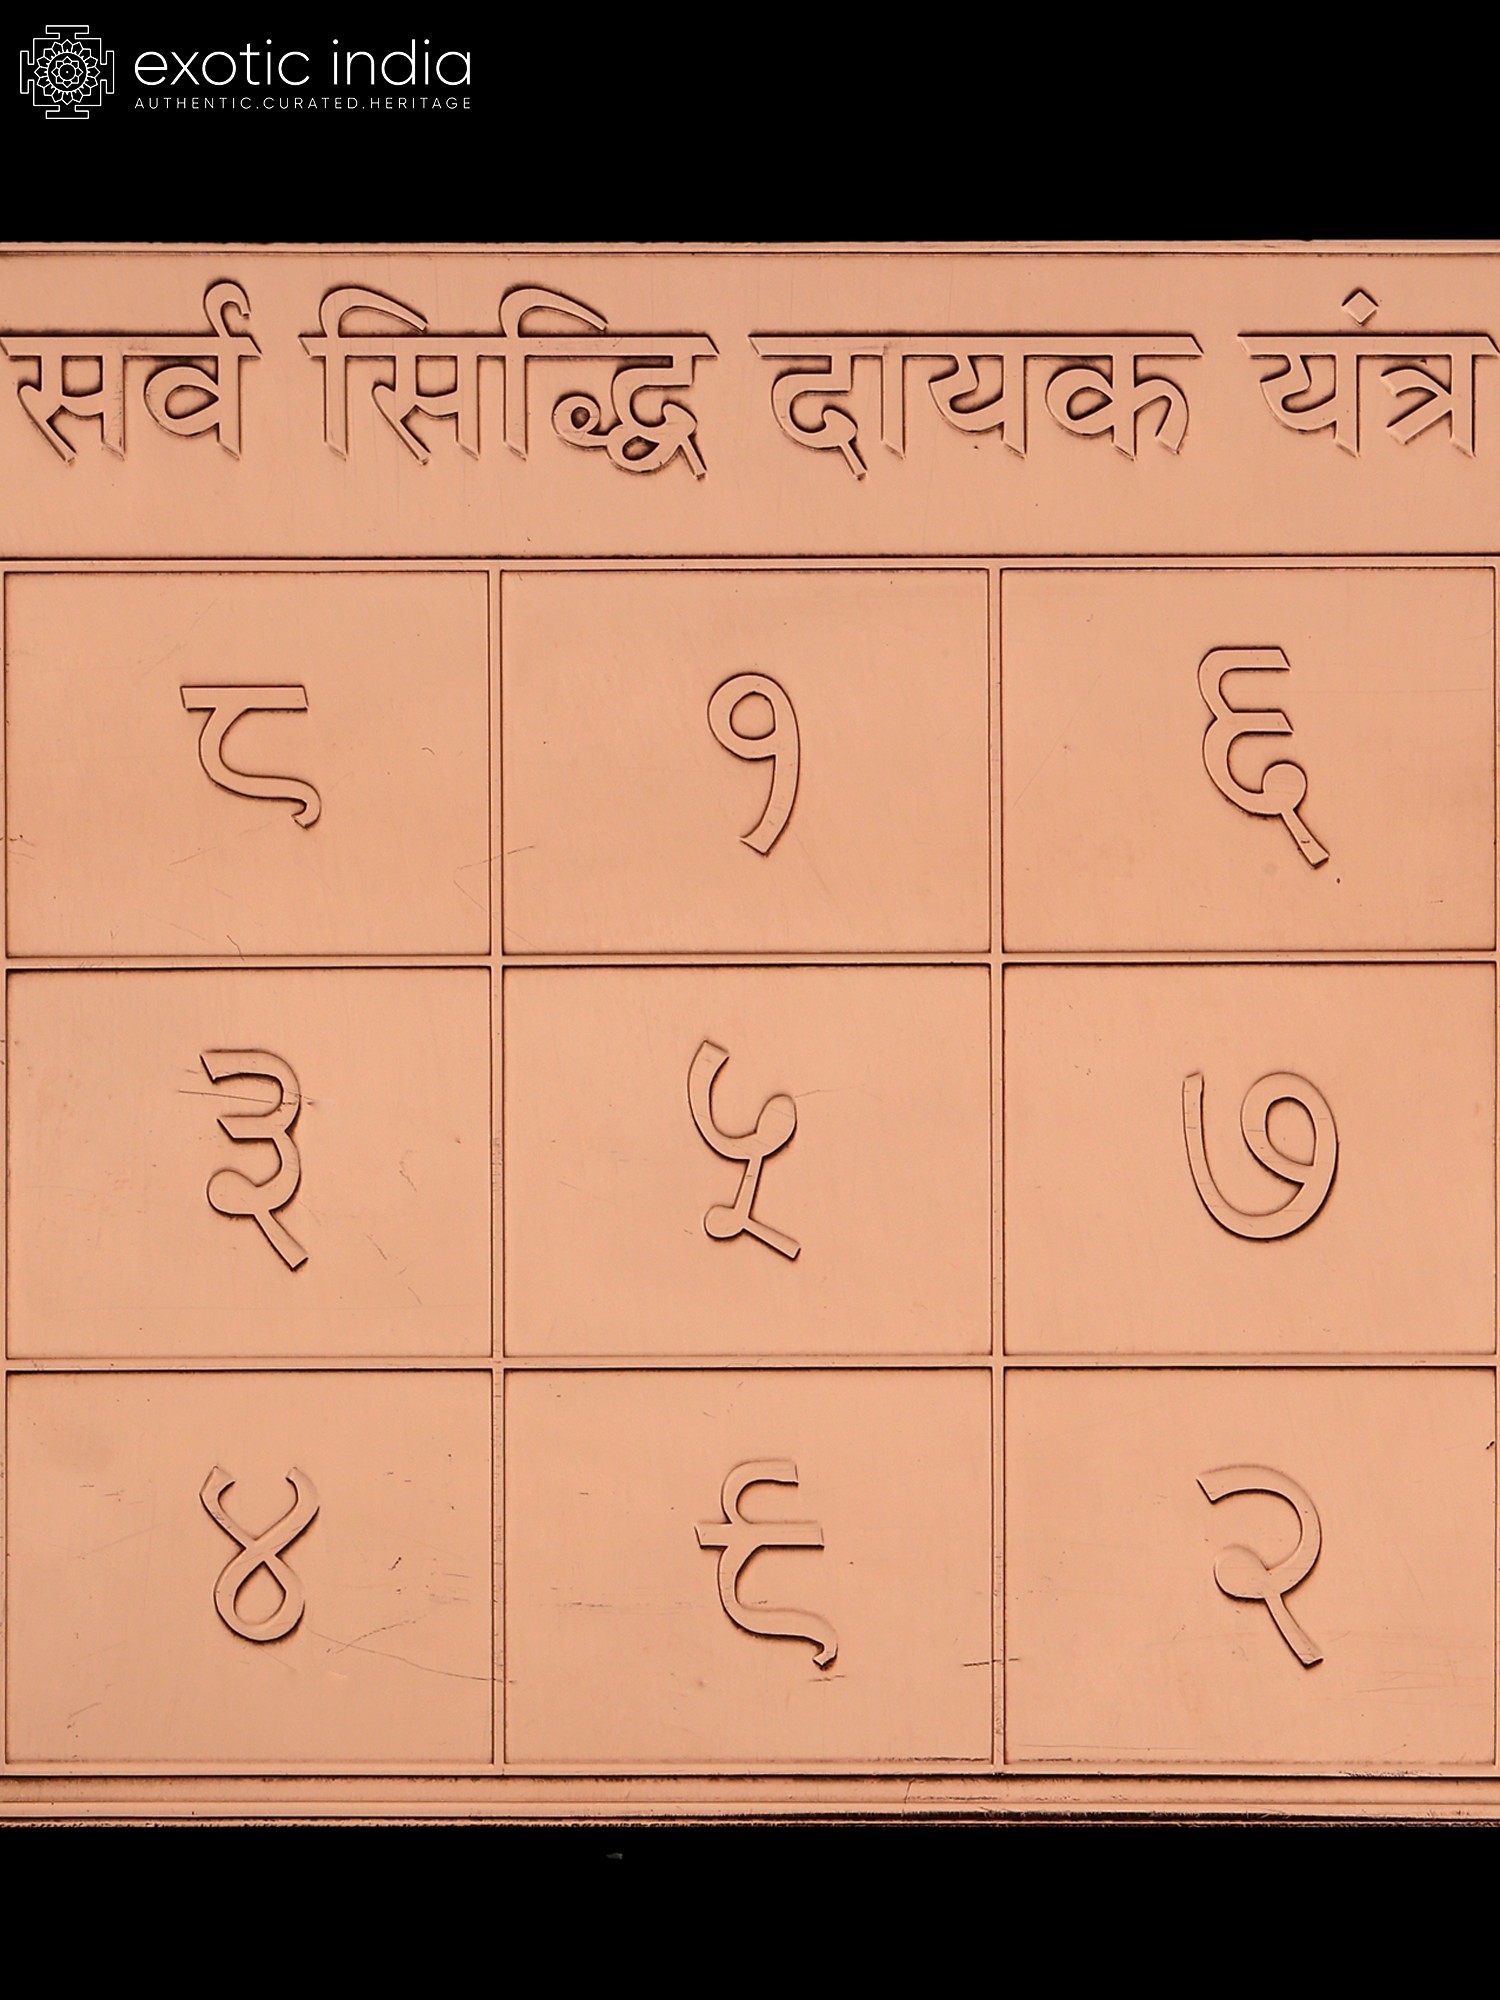 exotic india
AUTHENTIC.CURATED.HERITAGE
सर्व सिद्धि दायक यंत्र
८ १ ६
३ ५ ७
४ ९ २